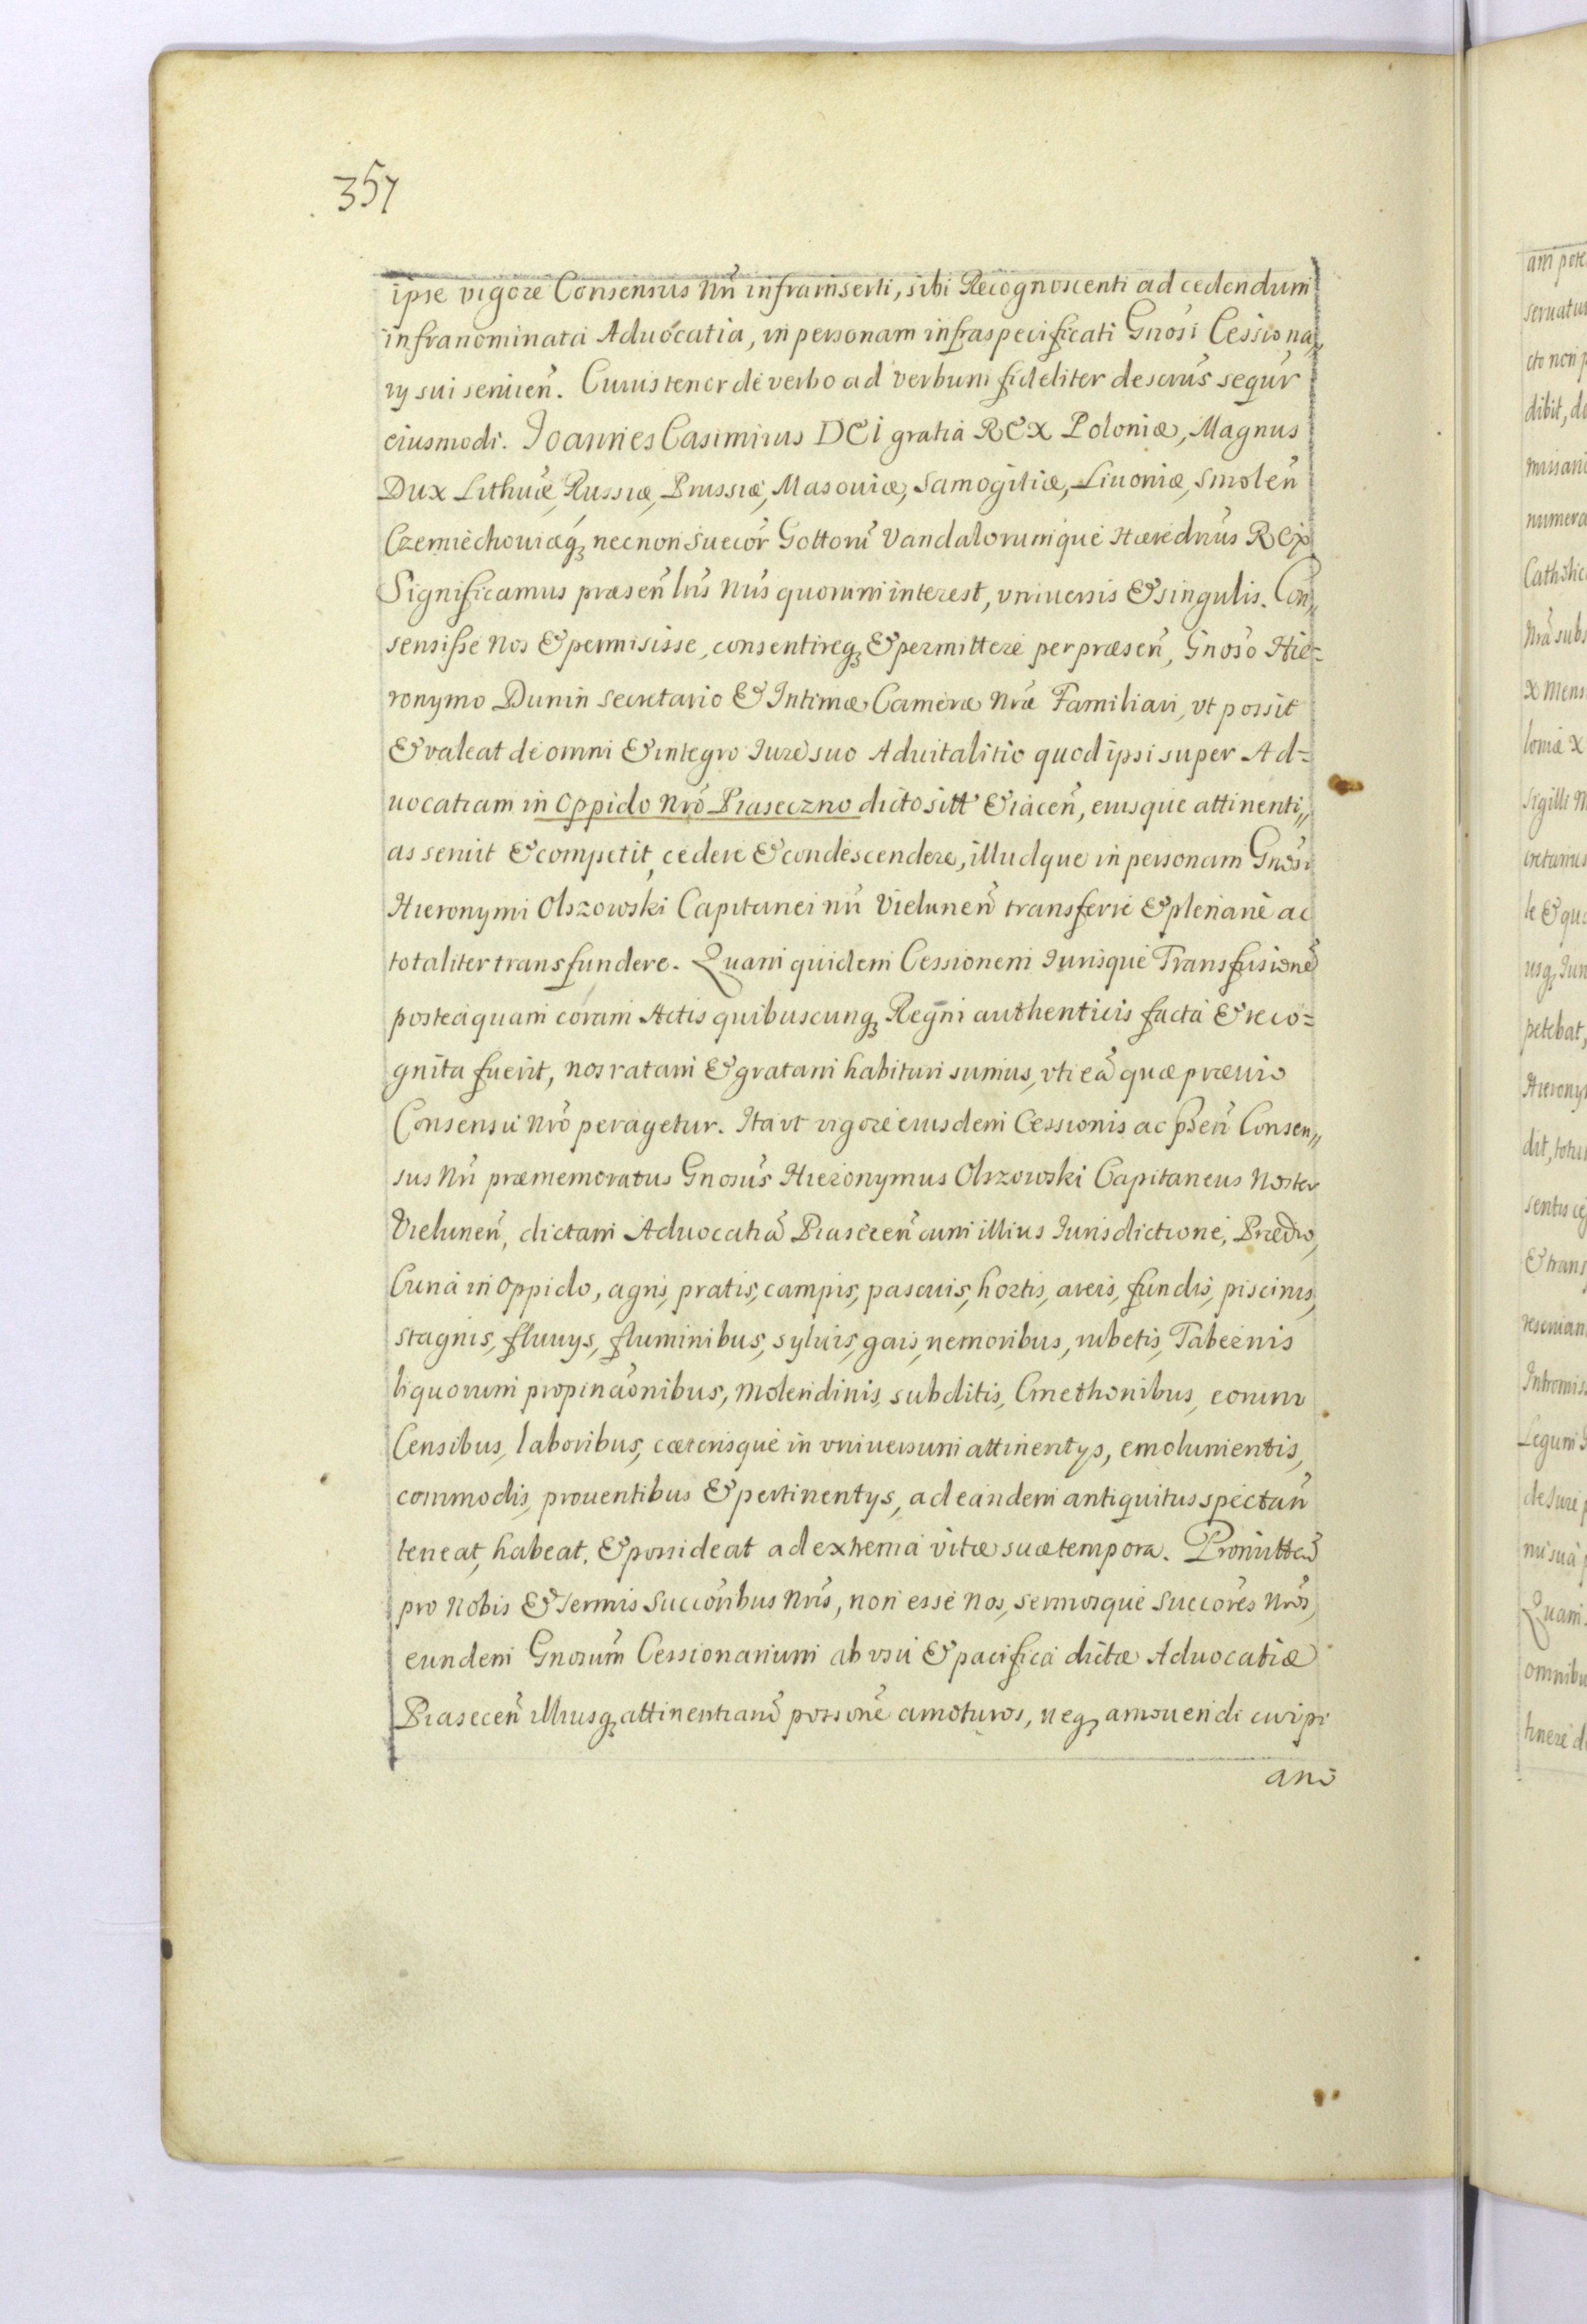 357
ipse vigore Consensus Nři infrainserti, sibi Recognoscenti ad cedendum
infranominata Aduocatia, in personam infraspecificati Gnosi Cessiona„
rÿ sui seruien̄. Cuius tenor de verbo ad verbum fideliter descrũs sequr̃
eiusmodi. Joannes Casimirus DEI gratia REX Poloniæ, Magnus
Dux Lithuæ, Russiæ, Prussiæ, Masouiæ, Samogitiæ, Liuoniæ, Smolen̄
Czerniechouiæq₃ necnon Suecor̃ Gottorũ Vandalorumque Hæredrius REX
Significamus præsen̄ lris̃ Nris̃ quorum interest, vniuersis & singulis. Con„
sensisse Nos & permisisse, consentireq₃ & permittere per præsen̄, Gnoso Hie=
ronymo Dunin Secretario & Intimæ Cameræ Nræ Familiari, vt possit
& valeat de omni & integro Iure suo Aduitalitio quod ipsi super Ad=
uocatiam in Oppido Nrõ Piaseczno dicto sitt̃ & iacen̄, eiusque attinenti„
as seruit & competit, cedere & condescendere, illudque in personam Gnosi
Hieronymi Olszowski Capitanei nři Vielunen̄ transferre & plenariè ac
totaliter transfundere. Quam quidem Cessionem Iurisque Transfusionẽ
posteaquam coram Actis quibuscunq₃ Regñi authenticis facta & reco=
gnita fuerit, nos ratam & gratam habituri sumus, vti eã quæ præuio
Consensu Nrõ peragetur. Ita vt vigore eiusdem Cessionis ac p̃sen̄ Consen„
sus Nři præmemoratus Gnosus̃ Hieronymus Olszowski Capitaneus Noster
Vielunen̄, dictam Aduocatiã Piasecen̄ cum illius Iurisdictione, Prædio,
Curia in Oppido, agris, pratis, campis, pascuis, hortis, areis, fundis, piscinis,
stagnis, fluuÿs, fluminibus, syluis, gais, nemoribus, rubetis, Tabernis
liquorum propinaõnibus, molendinis, subditis, Cmethonibus, eorum
Censibus, laboribus, cæterisque in vniuersum attinentÿs, emolumentis,
commodis, prouentibus & pertinentÿs, ad eandem antiquitus spectan̄
teneat, habeat, & possideat ad extrema vitæ suæ tempora. Promitten̄
pro Nobis & Sermis Succoribus Nris̃, non esse Nos, sermosque Succores Nros̃,
eundem Gnosum̃ Cessionarium ab vsu & pacifica dictæ Aduocatiæ
Piasecen̄ illiusq₃ attinentiarũ possionẽ amoturos, neq₃ amouendi cuipi
am